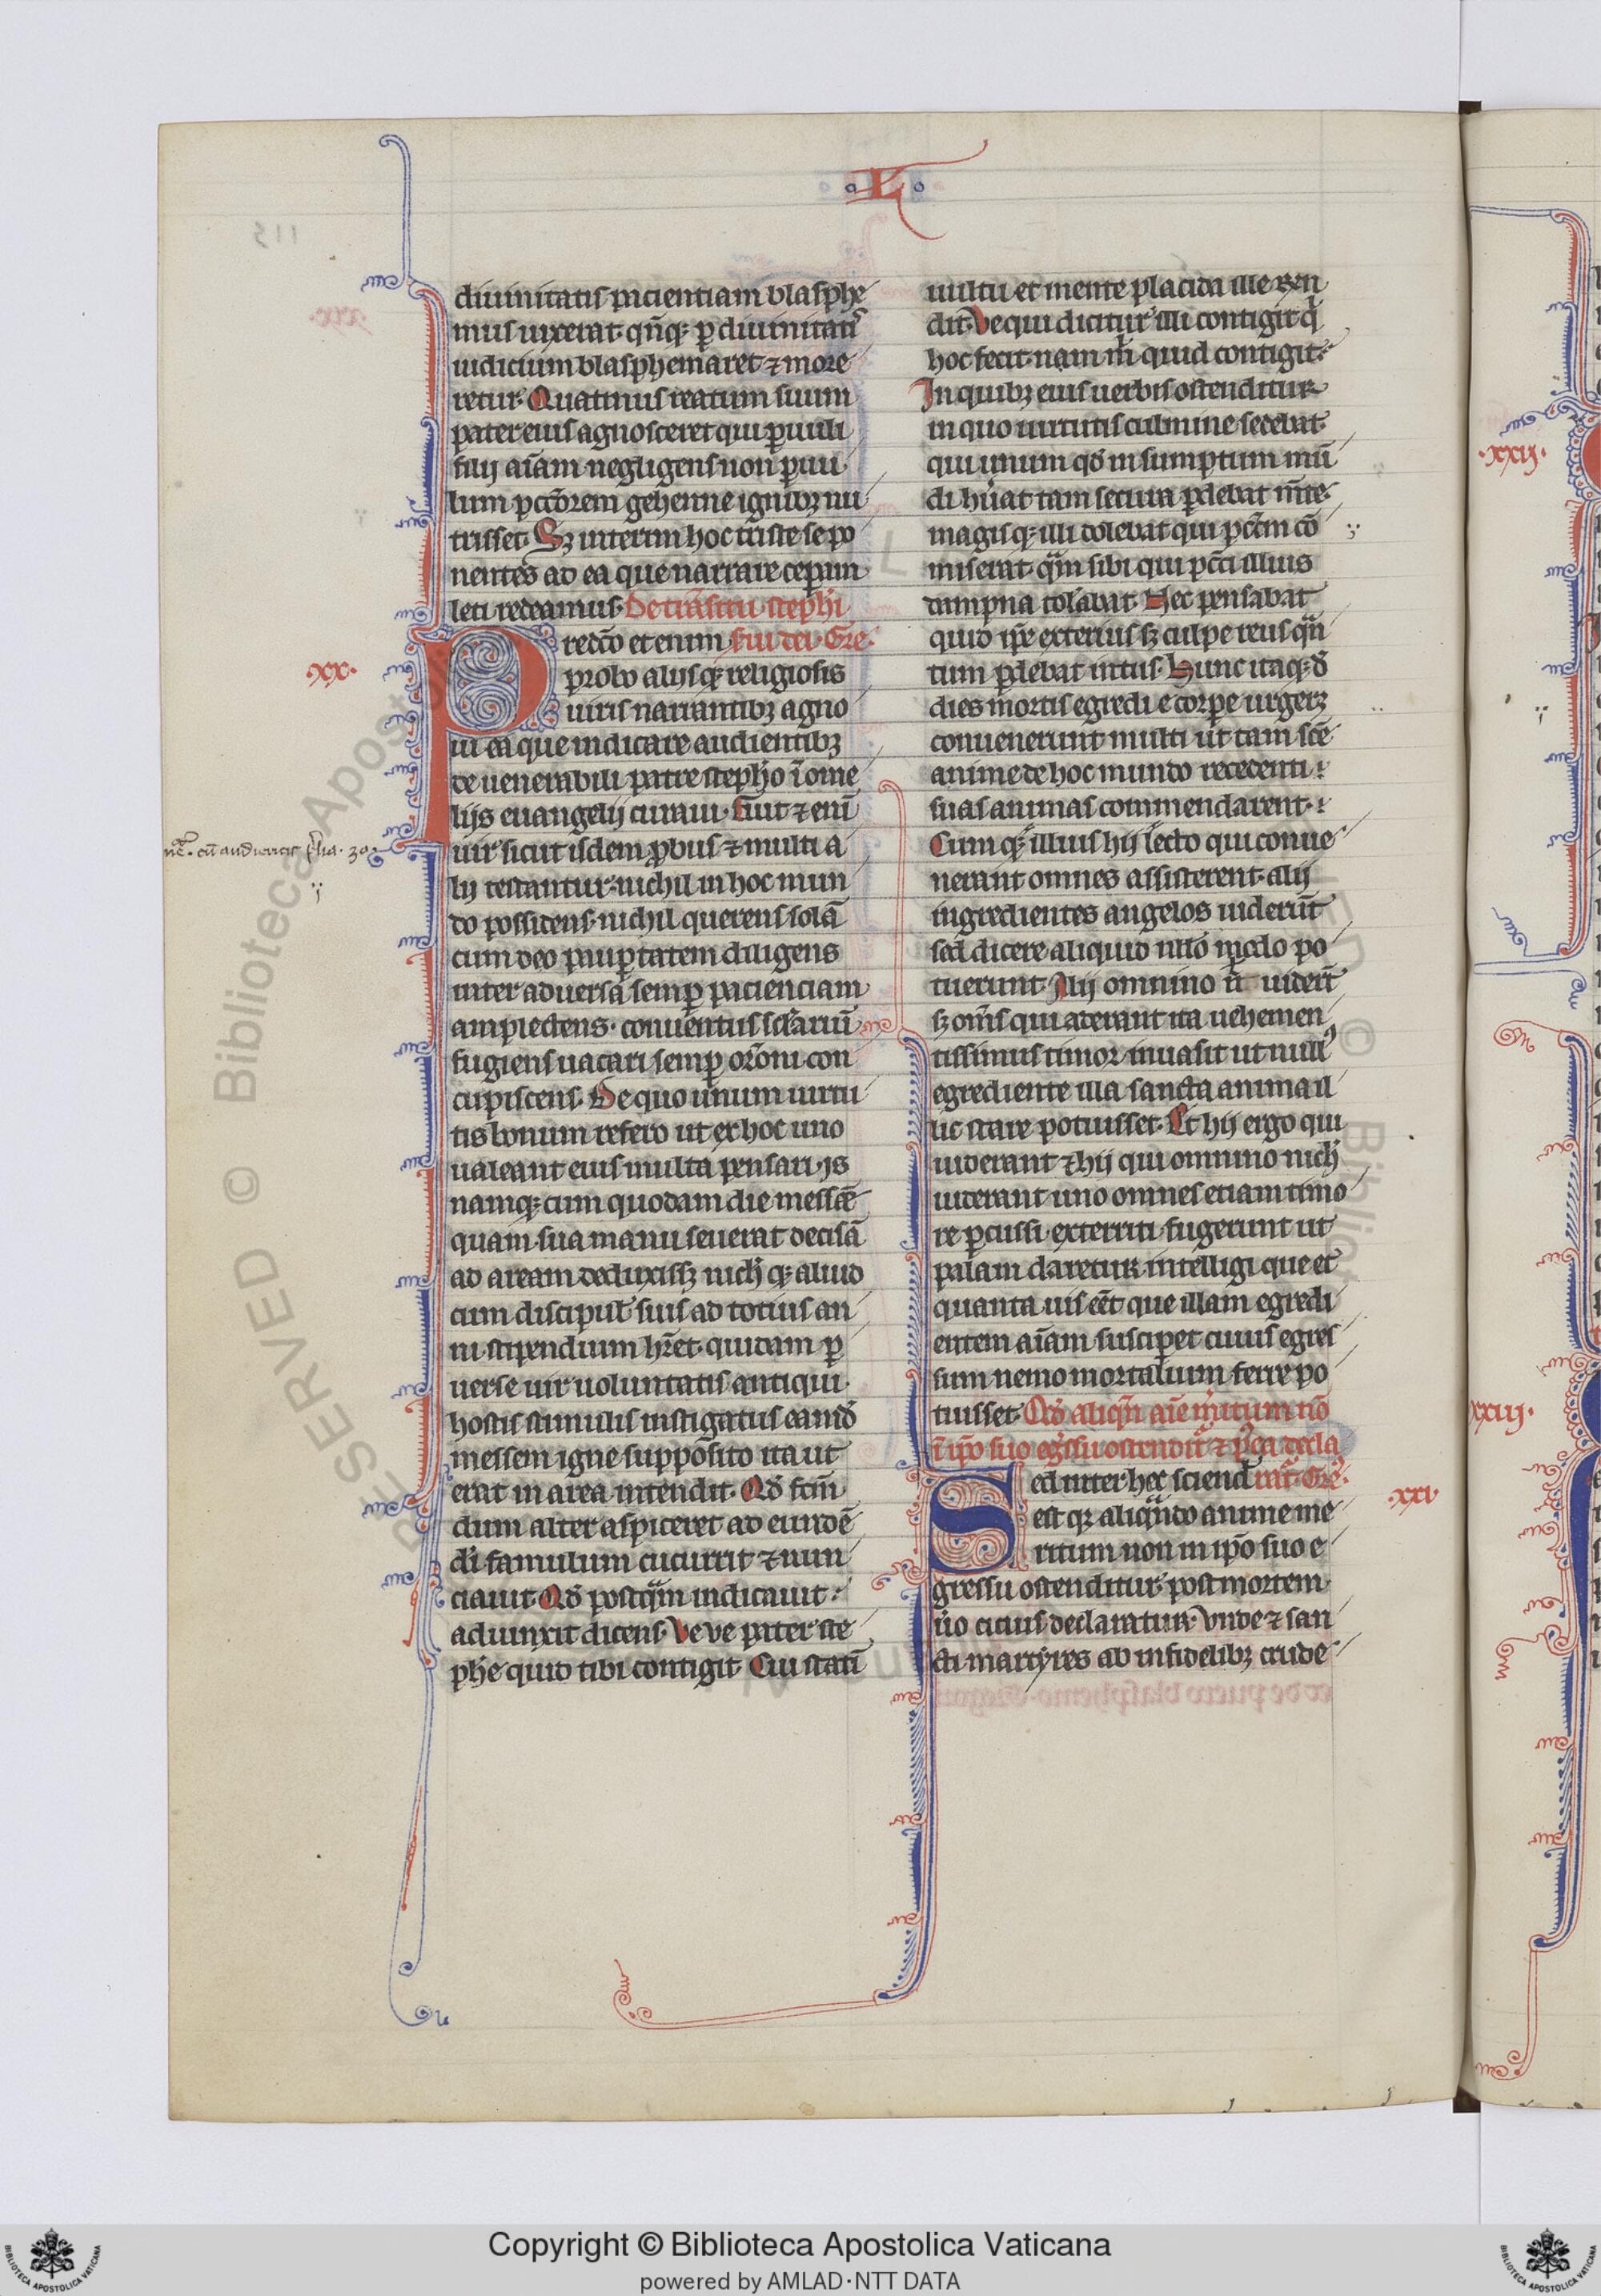 L
diuinitatis pacientiam blasphe
mus uixerat. qn̄q; ꝑ diuinitatis
iudicium blasphemaret ⁊ more
retur. Quatinus reatum suum
pater eius agnosceret qui paruuli
filij aīam negligens non paruu
lum pctōrem gehenne ignibꝫ nu
trisset. Sꝫ interim hoc triste sepo
nentes ad ea que narrare ceperam
leti redeamus. De trāsitu stephi
redcō et enim serui dei. Gre.
probo alijsq; religiosis
uiris narrantibꝫ agno
ui ea que indicare audientibꝫ
de uenerabili patre stepho ī ome
lijs euangelij curaui. Fuit ⁊ enī
uir sicut isdem probus ⁊ multi a
lij testantur nichil in hoc mun
do possidens. nichil querens solā
cum deo pauꝑtatem diligens
inter aduersa semꝑ pacienciam
amplectens. conuentus sclariū
fugiens uacari semꝑ orōni con
cupiscens. De quo unum uirtu
tis bonum refero ut ex hoc uno
ualeant eius multa pensari. Is
namq; cum quodam die messē
quam sua manu seuerat decisā
ad aream deduxissꝫ nichqꝫ aliud
cum discipul' suis ad totius an
ni stipendium hr̄et. quidam ꝑ
uerse uir uoluntatis antiqui
hostis stimulis instigatus eamd'
messem igne supposito ita ut
erat in area incendit. Qd' fcm̄
dum alter aspiceret ad eundē
di famulum cucurrit ⁊ nun
ciauit. Qd' postqm̄ indicauit:
adiunxit dicens. Ve ve pater ste
phe quid tibi contigit. Cui statī
uultu et mente placida ille respon
dit. Ve qui dicitur illi contigit q̄
hoc fecit. nam m̄ quid contigit.
In quibꝫ eius uerbis ostenditur
in quo uirtutis culmine sedebat
qui unum qd' in sumptum mū
di huāt tam secura ꝑdebat mēte
magisq; illi dolebat qui pctm̄ cō
miserat. qm̄ sibi qui pccī illius
dampna tolābat. Nec pensabat
quid ip̄e exterius sꝫ culpe reus qn̄
tum ꝑdebat intus. Hunc itaq; d'
dies mortis egredi e corꝑe urgerꝫ
conuenerunt multi ut tam scē
anime de hoc mundo recedenti
suas animas commendarent.
Cumq; illius hij lecto qui conue
nerant omnes assisterent. alij
ingredientes angelos uiderūt
sed dicere aliquid nllō modo po
tuerunt. Alij omnino n̄ uiderūt
sꝫ omīs qui aderant ita uehemen
tissimus timor inuasit ut null'
egrediente illa sancta anima il
lic stare potuisset. Et hij ergo qui
uiderant ⁊ hij qui omnino nich
uiderant uno omnes etiam timo
re ꝑcussi exterriti fugerunt ut
palam daretur intelligi que et
quanta uis eēt que illam egredi
entem aīam susciꝑet cuius egres
sum nemo mortalium ferre po
tuisset. Qd' aliqn̄ aīe meritum nō
ī ipō suo egressu ostenditur ⁊ postea decla
ed inter hec sciend rat. Gre.
est qꝫ aliqn̄do anime me
ritum non in ipō suo e
gressu ostenditur post mortem
uo cicius declaratur. Vnde ⁊ san
cti martyres ab infidelibꝫ crude
xx.
xxi
xxij.
xxiij.
Copyright © Biblioteca Apostolica Vaticana
powered by AMLAD·NTT DATA